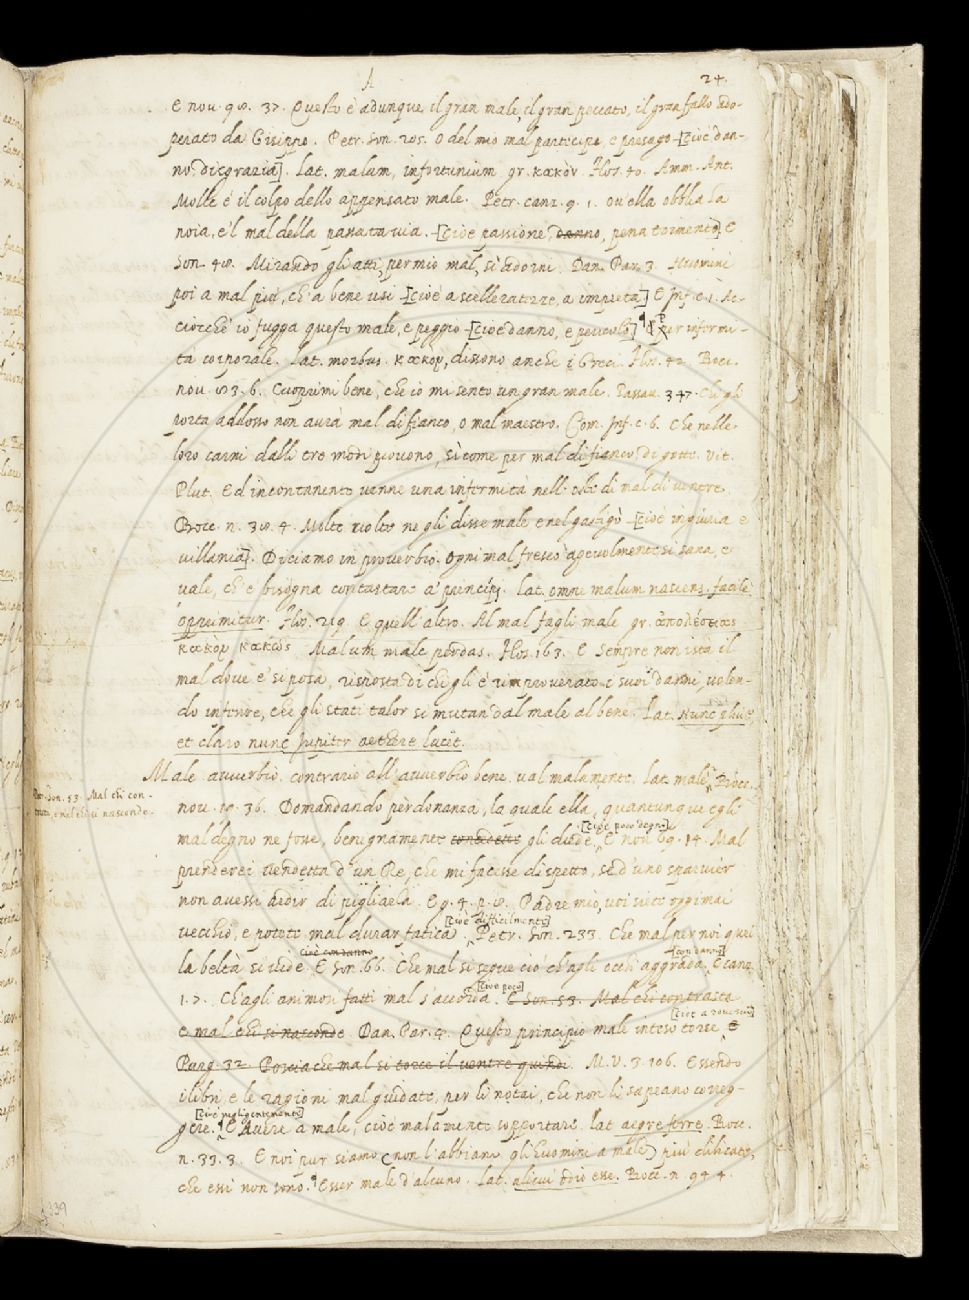 A
24.
E nou. 98. 37. Questo è adunque il gran male, il gran peccato, il gran fallo ado-
perato da Gisippo. Petr. Son. 205. O del mio mal partecipe, e presago [cioè dan-
no, disgrazia]. Lat. malum, infortunium gr. κακὸν. Flos. 40. Amm. Ant.
Molle è il colpo dello appensato male. Petr. canz. 9. 1. Ou'ella obblia la
noia, e'l mal della passata uia. [cioè passione, danno, pena tormento] E
Son. 48. Mirando gli atti, per mio mal, sì adorni. Dan. Par. 3. Huomini
poi a mal più, ch'a bene usi [cioè a scelleratezze, a impietà] E Inf. c. 1. Ac-
ciocchè io fugga questo male, e peggio [cioè danno, e pericolo] ¶ Per infermi-
tà corporale. Lat. morbus. κακὸν, dissono anche i Greci. Flos. 42. Bocc.
nou. 83. 6. Cuoprimi bene, che io mi sento un gran male. Passau. 347. Chi gli
porta addosso non aurà mal di fianco, o mal maestro. Com. Inf. c. 6. Che nelle
loro carni dalli tre modi piouono, sì come per mal di fianco, di gotte. Vit.
Plut. Ed incontanente uenne una infermità nell'oste di mal di uentre.
Bocc. n. 38. 4. Molte uolte ne gli disse male e nel gastigò [cioè ingiuria e
uillania]. Diciamo in prouerbio. Ogni mal fresco ageuolmente si sana, e
uale, ch'e' bisogna contastare a' principi. Lat. omne malum nascens facile
opprimitur. Flos. 219. E quell'altro. Al mal fagli male gr. ἀπολέσειας
κακὸν κακῶς Malum male perdas. Flos. 163. E Sempre non istà il
mal doue e' si posa, risposta di chi gli è rimprouerato i suoi danni, uolen-
do inferire, che gli stati talor si mutan dal male al bene. Lat. Nunc pluit,
et claro nunc Jupiter aethere lucit.
Male auuerbio. contrario all'auuerbio bene. ual malamente. lat. male. Bocc.
Petr. Son. 53. Mal chi con-
trasta, e mal chi si nasconde.
nou. 18. 36. Domandando perdonanza, la quale ella, quantunque egli
mal degno ne fosse, benignamente concedette gli diede. [cioè poco degno] E nou. 69. 14. Mal
prenderei uendetta d'un Re, che mi facesse dispetto, se d'uno sparuier
non auessi ardir di pigliarla. E g. 4. p. 8. Padre mio, uoi siete oggimai
uecchio, e potete mal durar fatica. [cioè difficilmente] Petr. Son. 233. Che mal per noi quel-
la beltà si uide. [cioè con danno] E Son. 66. Che mal si segue ciò ch'agli occhi aggrada. [con danno] E canz.
1. 7. Ch'agli animosi fatti mal s'accorda. [cioè poco] E Son. 53. Mal chi contrasta
e mal chi si nasconde Dan. Par. 4. Questo principio male inteso torse. [cioè a rouescio] E
Purg. 32. Posciache mal si torce il uentre quindi. M. V. 3. 106. Essendo
i libri, e le ragioni mal guidate, per li notai, che non li sapeano correg-
gere. [cioè negligentemente] ¶ E Auere a male, cioè malamente sopportare. lat. aegre ferre. Bocc.
n. 33. 3. E noi pur siamo (non l'abbiano gli huomini a male) più dilicate,
che essi non sono. ¶ Esser male d'alcuno. Lat. alicui odio esse. Bocc. n. 94. 4.
339